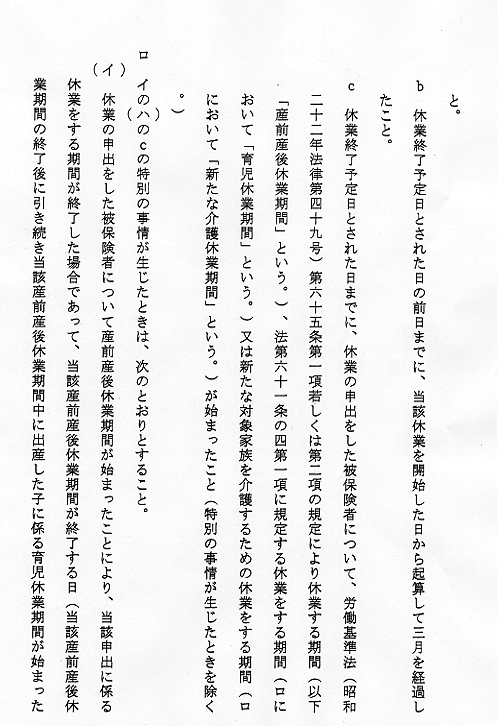 と。
b　休業終了予定日とされた日の前日までに、当該休業を開始した日から起算して三月を経過し
たこと。
c　休業終了予定日とされた日までに、休業の申出をした被保険者について、労働基準法（昭和
二十二年法律第四十九号）第六十五条第一項若しくは第二項の規定により休業する期間（以下
「産前産後休業期間」という。）、法第六十一条の四第一項に規定する休業をする期間（ロに
おいて「育児休業期間」という。）又は新たな対象家族を介護するための休業をする期間（ロ
において「新たな介護休業期間」という。）が始まったこと（特別の事情が生じたときを除く
。）
ロ　イの（ハ）のcの特別の事情が生じたときは、次のとおりとすること。
（イ）　休業の申出をした被保険者について産前産後休業期間が始まったことにより、当該申出に係る
休業をする期間が終了した場合であって、当該産前産後休業期間が終了する日（当該産前産後休
業期間の終了後に引き続き当該産前産後休業期間中に出産した子に係る育児休業期間が始まった